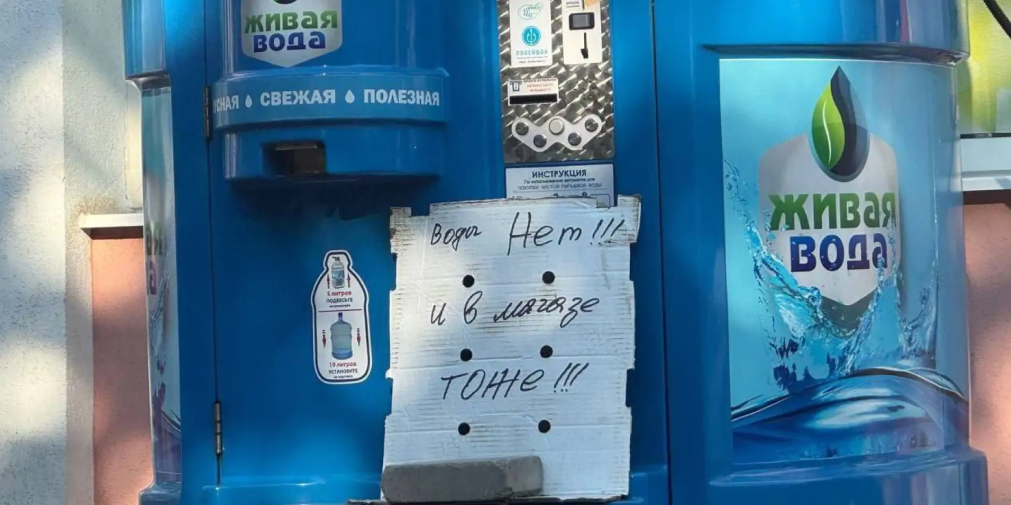 ЖИВАЯ
ВОДА
СВЕЖАЯ ПОЛЕЗНАЯ
ПОСЕЙДОН
ИНСТРУКЦИЯ
По использованию автомата для
ПОКУПКИ ЧИСТОЙ ПИТЬЕВОЙ ВОДЫ
Воды Нет!!!
и в магазе
ТОЖЕ!!!
5 литров
ПОДВЕСЬТЕ
19 литров
УСТАНОВИТЕ
ЖИВАЯ
ВОДА